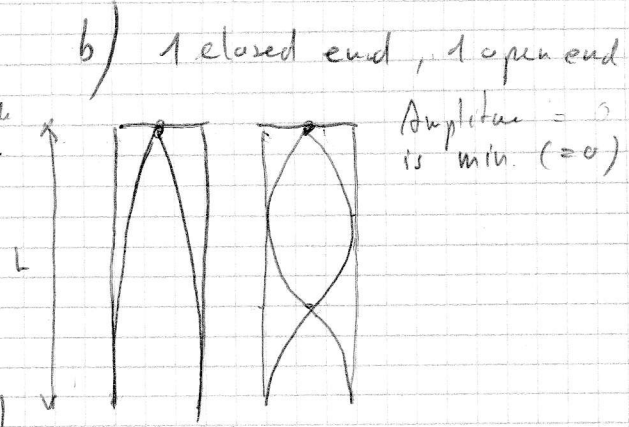 b) 1 closed end, 1 open end
Amplitude =
is min. (=0)
L